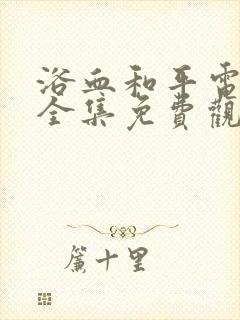 浴血和平電
全集免費觀
簾十里